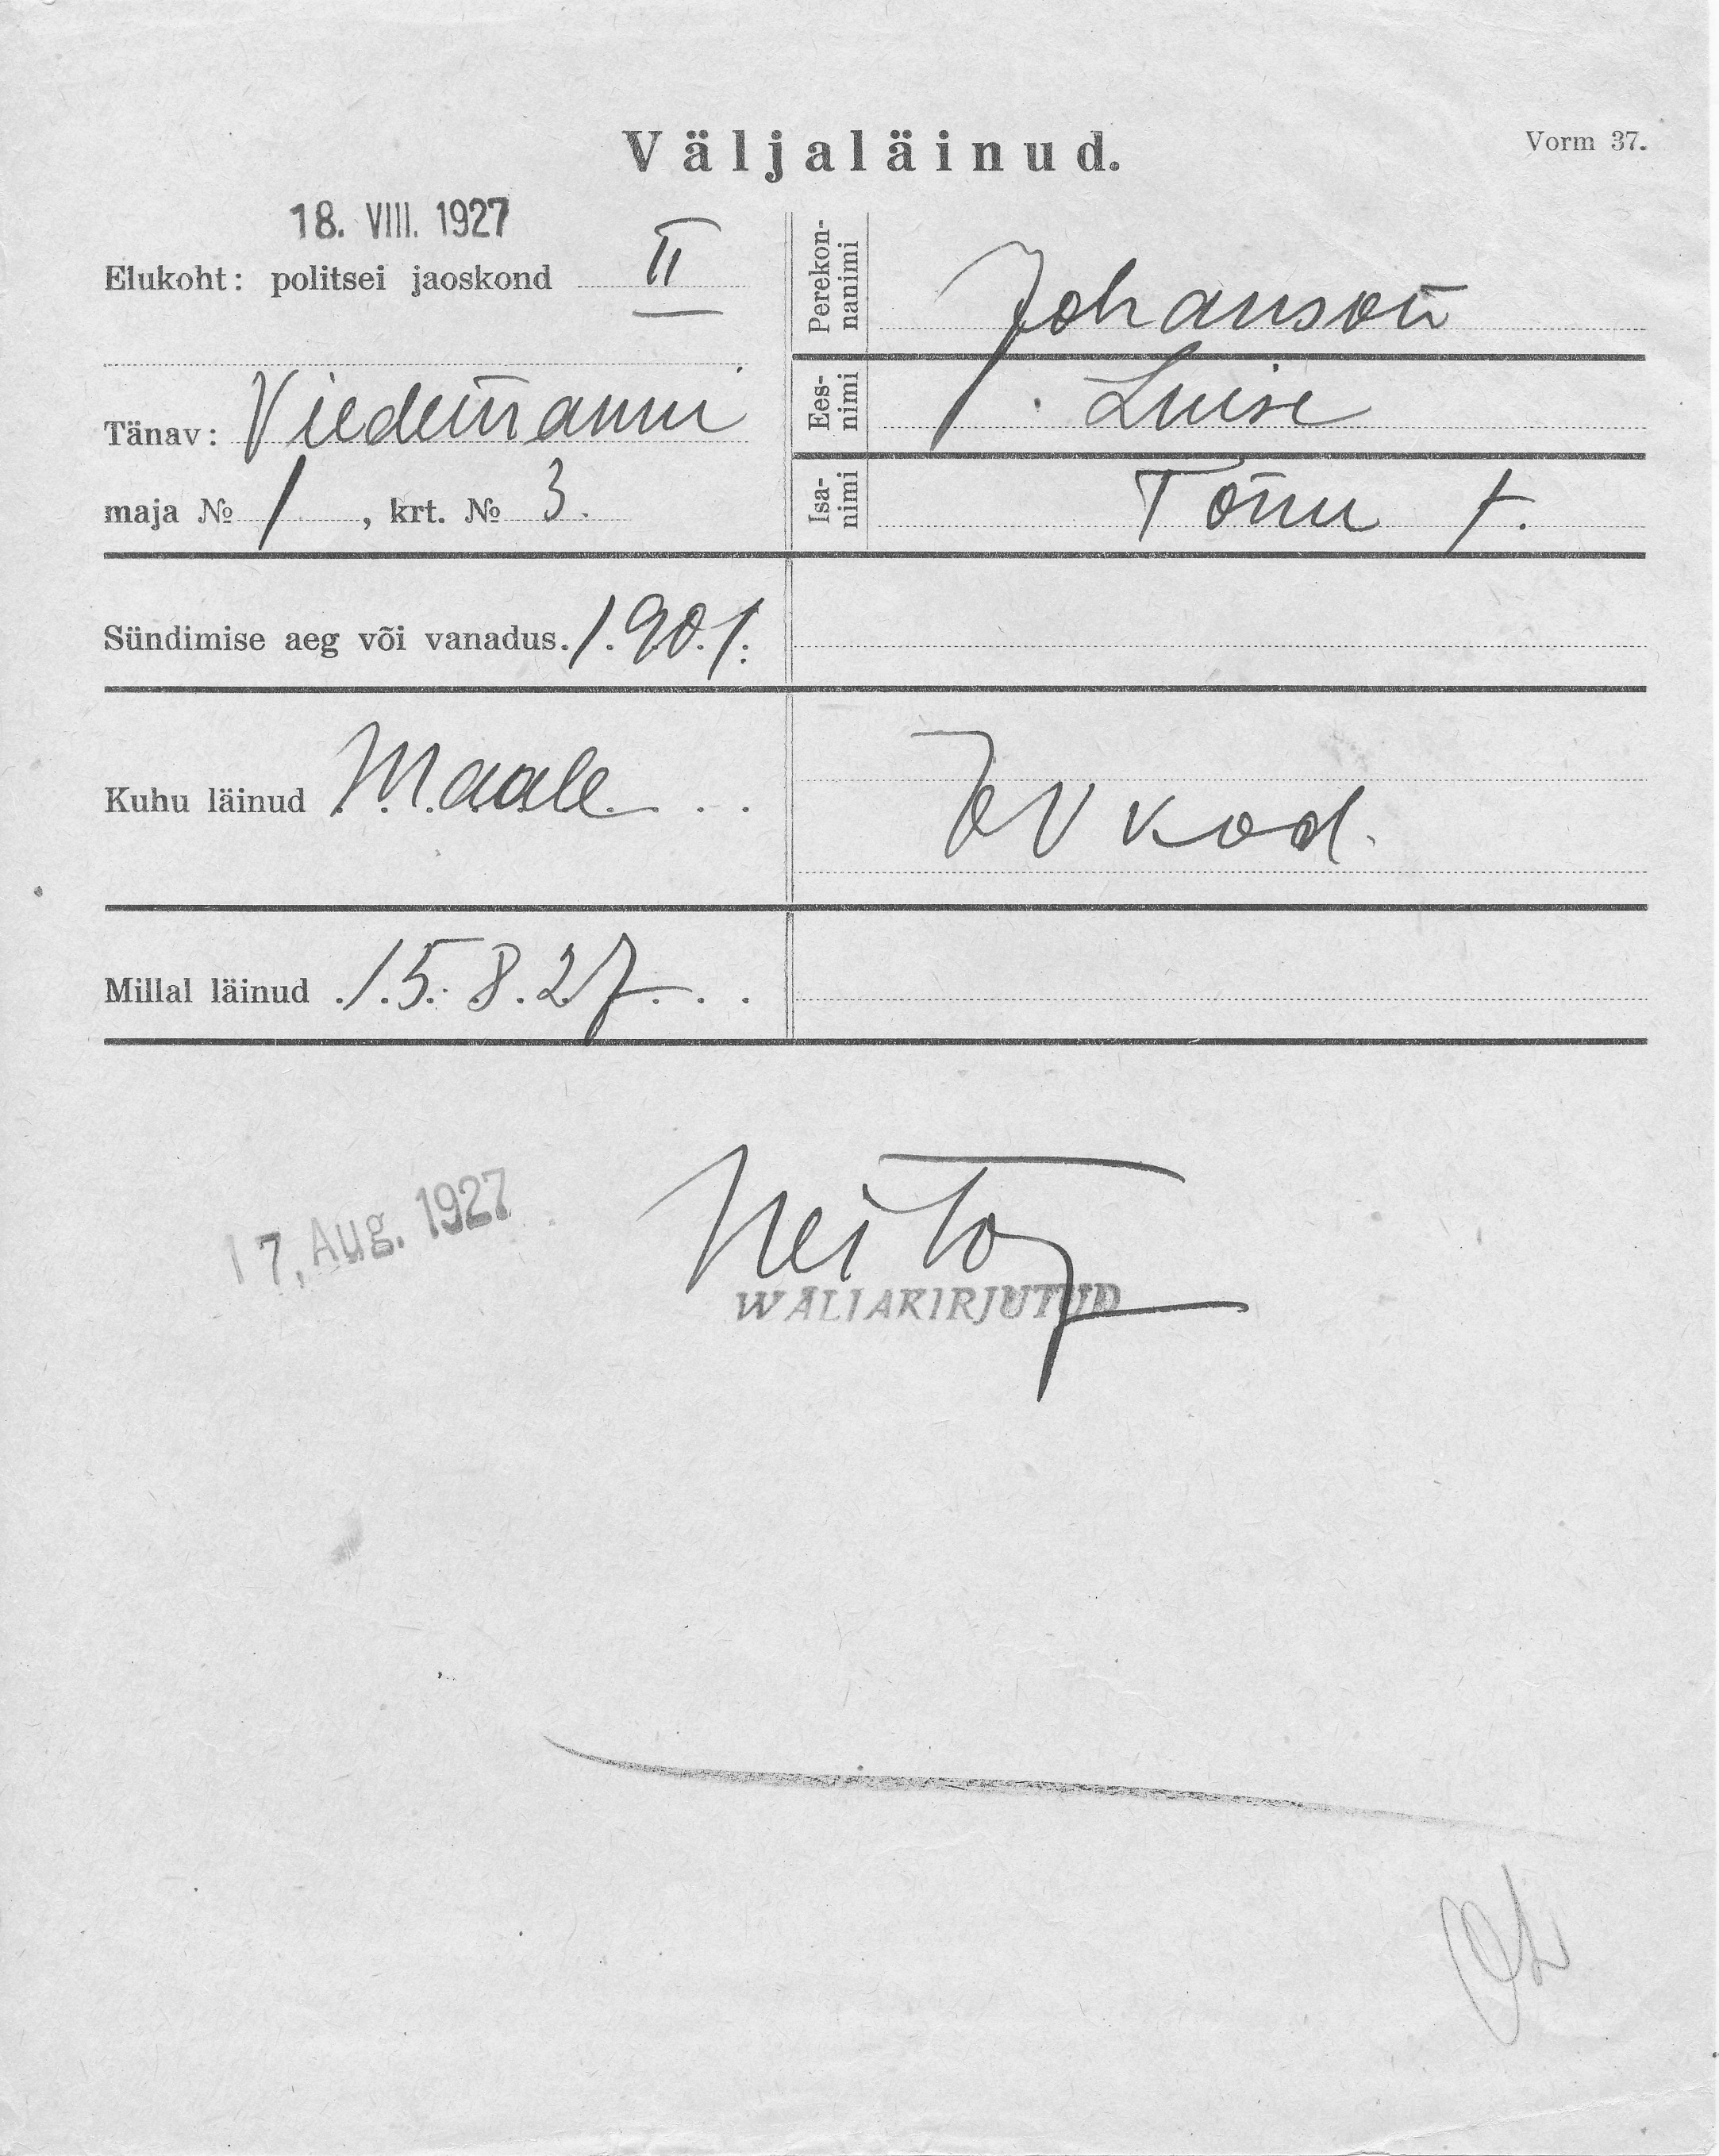 Väljaläinud.
Vorm 37.
18. VIII. 1927
Elukoht: politsei jaoskond II
Tänav: Viedemanni
maja № 1, krt. № 3.
Perekon-
nanimi
Johanson
Ees-
nimi
Luise
Isa-
nimi
Tõnu t.
Sündimise aeg või vanadus. 1901.
Kuhu läinud Maale
kod.
Millal läinud 15. 8. 27.
17. Aug. 1927
WÄLJAKIRJUTUD